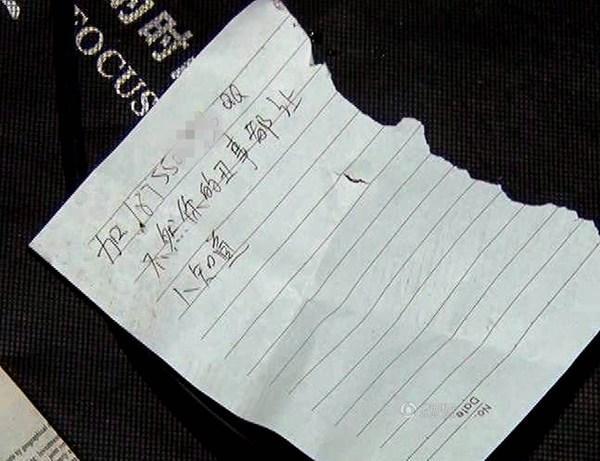 的时
FOCUS
加18755 QQ
不然你的丑事都让
人知道
No.
Date